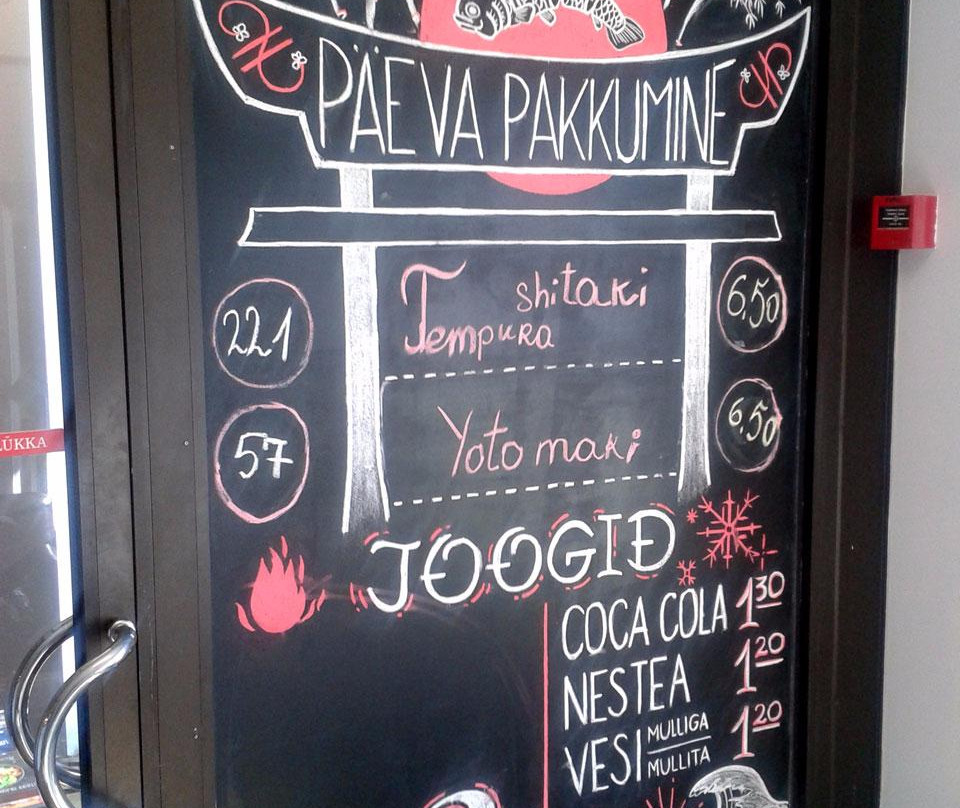 PÄEVA PAKKUMINE
221 Tempura shitaki 6,50
57 Yoto maki 6,50
LÜKKA
JOOGID
COCA COLA 1 30
NESTEA 1 20
VESI MULLIGA MULLITA 1 20